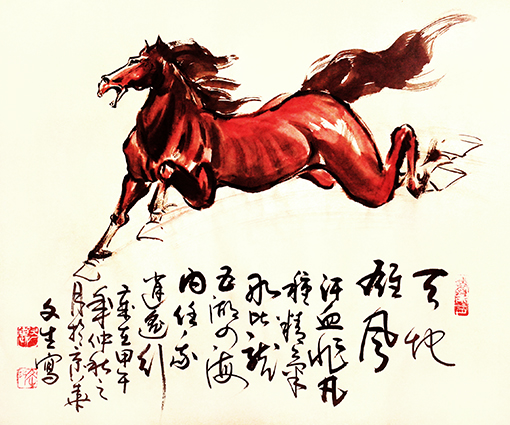 天地
雄風
汗血非凡
種精氣
比龍
五湖四海
内任我
逍遥行
歲在甲午
年仲秋之
月於京華
文生寫